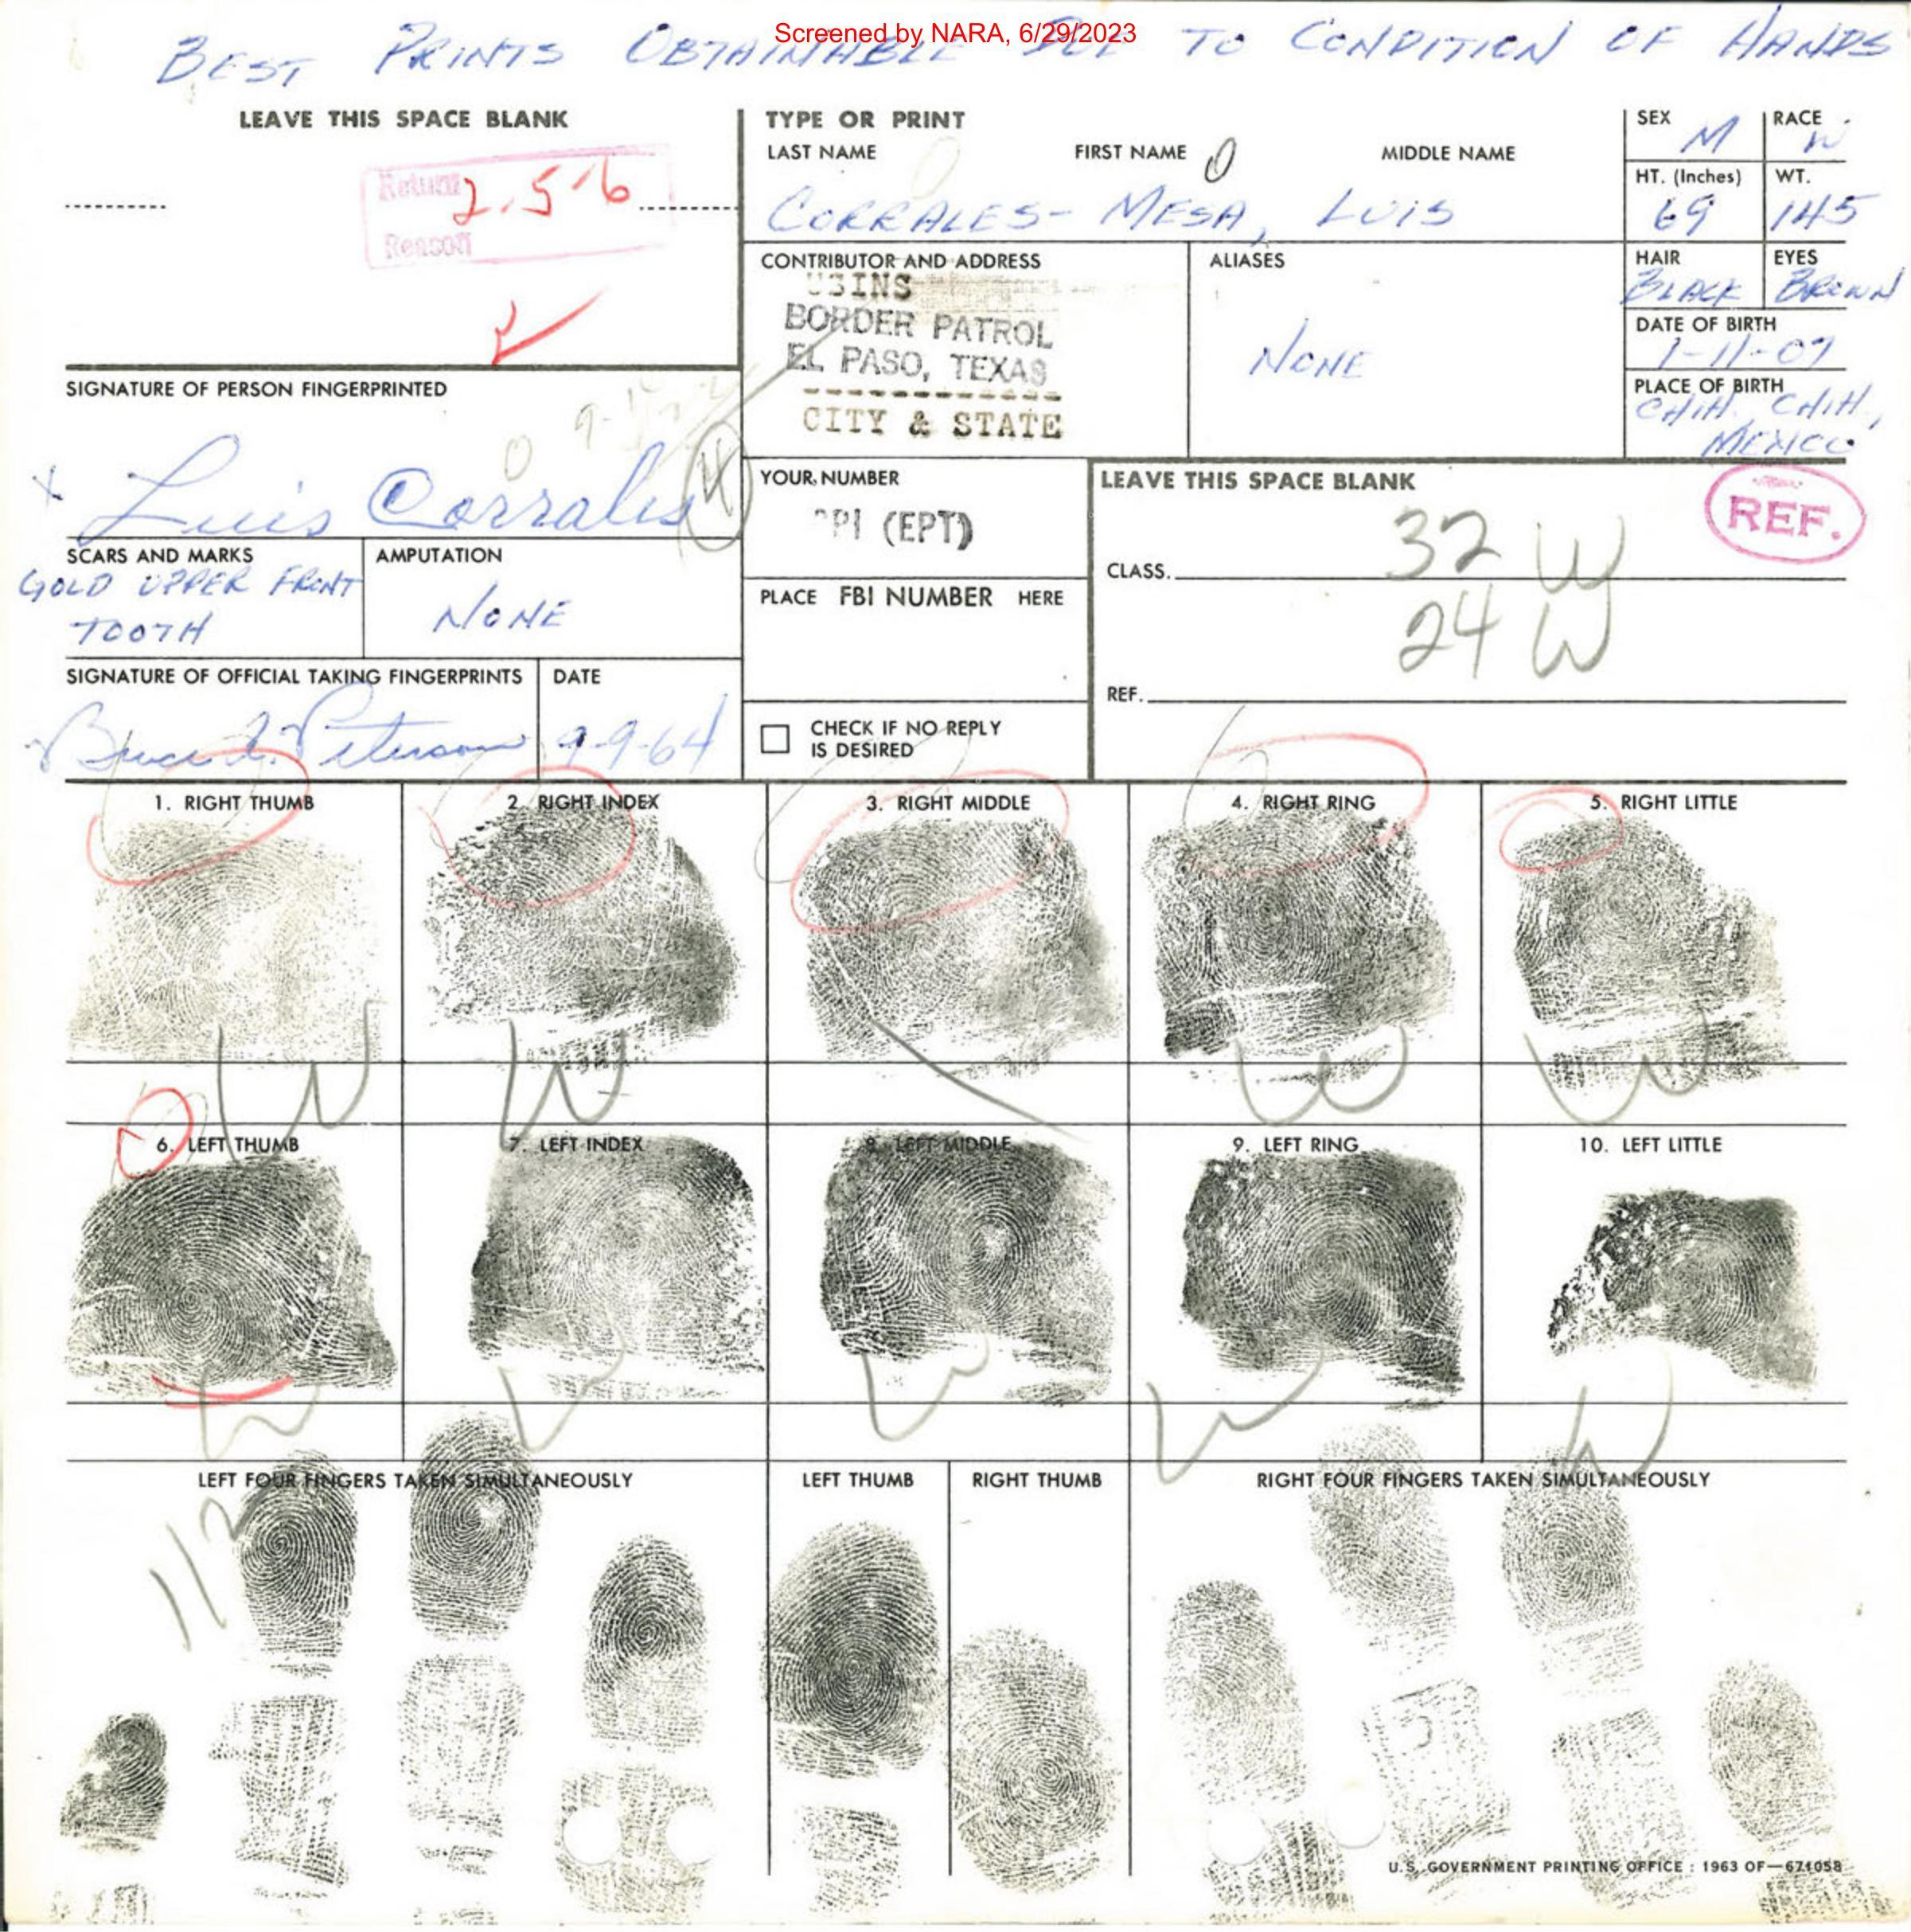 Screened by NARA, 6/29/2023
BEST PRINTS OBTAINABLE DUE TO CONDITION OF HANDS
LEAVE THIS SPACE BLANK
Return 2.5.6
Reason
TYPE OR PRINT
LAST NAME FIRST NAME MIDDLE NAME
CORRALES-MESA, LUIS
SEX M
RACE W
HT. (Inches) 69
WT. 145
HAIR BLACK
EYES BROWN
DATE OF BIRTH
PLACE OF BIRTH
CHIH. CHIH,
MEXICO
CONTRIBUTOR AND ADDRESS
USINS
BORDER PATROL
EL PASO, TEXAS
CITY & STATE
ALIASES
NONE
SIGNATURE OF PERSON FINGERPRINTED
x Luis Corrales
YOUR NUMBER
(EPT)
LEAVE THIS SPACE BLANK
REF.
CLASS. 32 W
24 W
REF.
SCARS AND MARKS
GOLD UPPER FRONT
TOOTH
AMPUTATION
NONE
PLACE FBI NUMBER HERE
SIGNATURE OF OFFICIAL TAKING FINGERPRINTS
Bruce L. Peterson
DATE
9-9-64
CHECK IF NO REPLY
IS DESIRED
1. RIGHT THUMB
2. RIGHT INDEX
3. RIGHT MIDDLE
4. RIGHT RING
5. RIGHT LITTLE
W W W W
6. LEFT THUMB
7. LEFT INDEX
8. LEFT MIDDLE
9. LEFT RING
10. LEFT LITTLE
W W W W W
LEFT FOUR FINGERS TAKEN SIMULTANEOUSLY
LEFT THUMB
RIGHT THUMB
RIGHT FOUR FINGERS TAKEN SIMULTANEOUSLY
U.S. GOVERNMENT PRINTING OFFICE : 1963 OF—671058